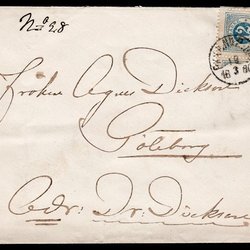 No 28
Fröken Agnes Dickson
Göteborg
Adr: Dr: Dickson